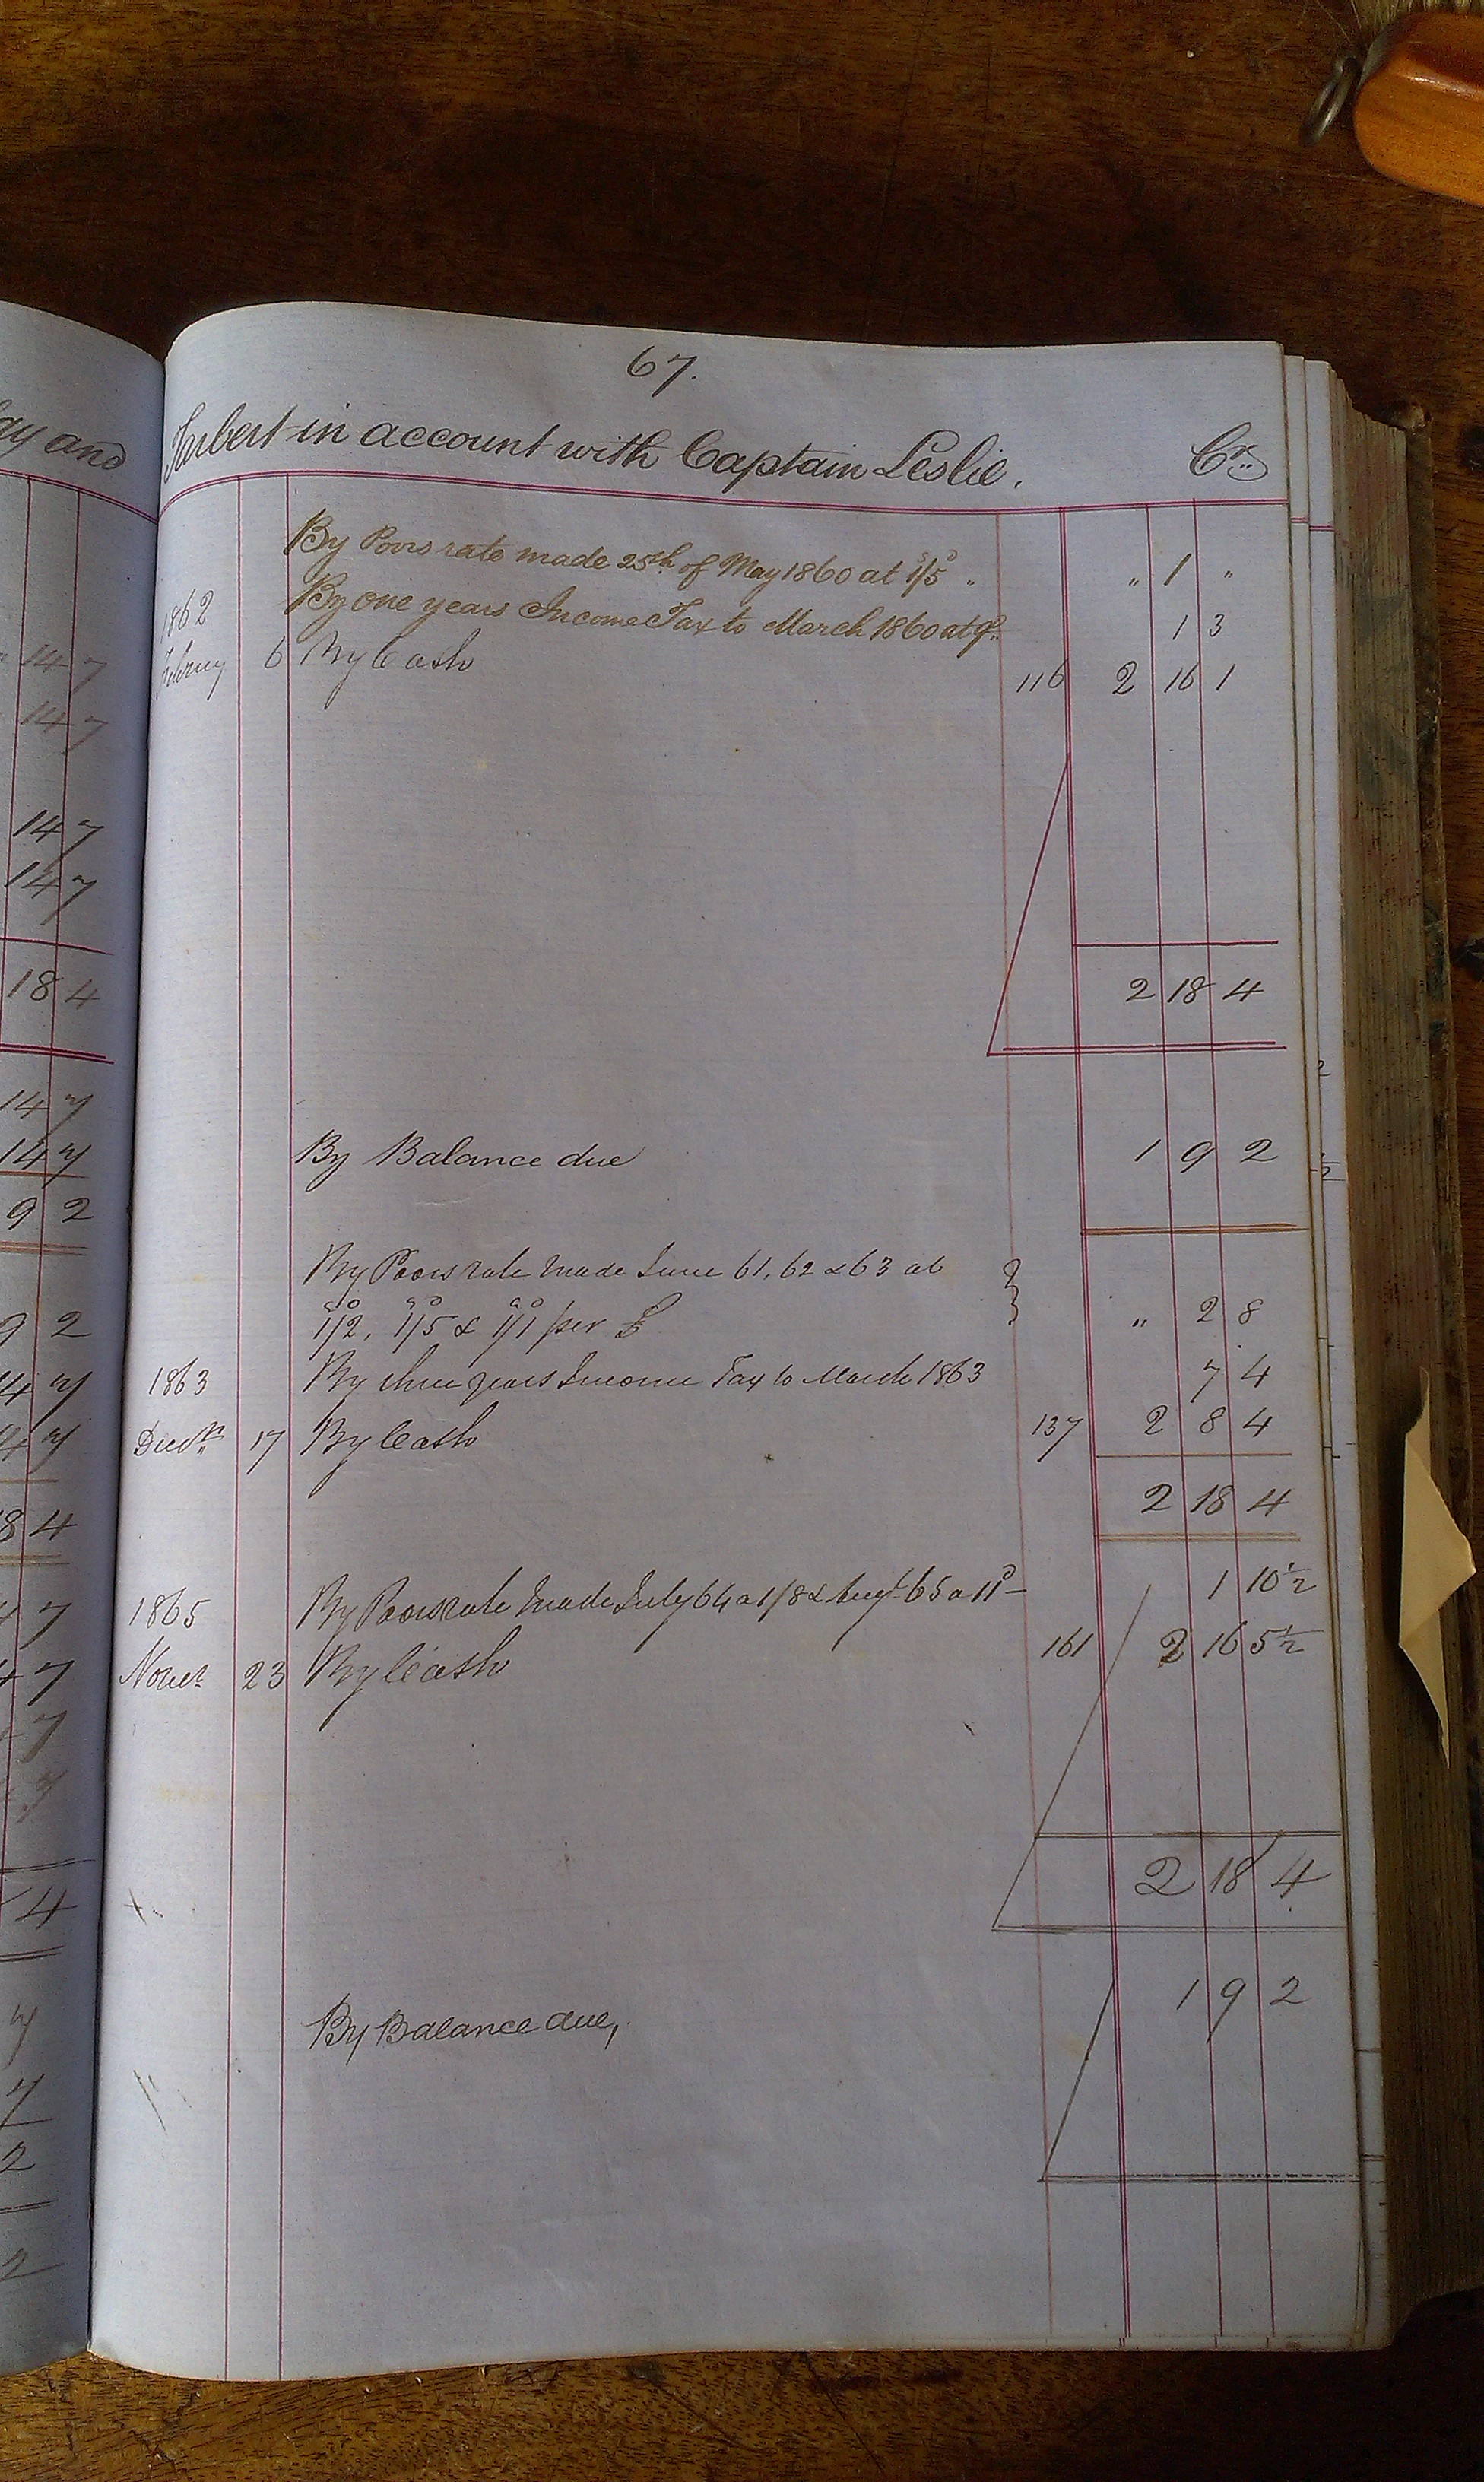 67.
ay and
Tarbert in account with Captain Leslie. Cr.
By Poors rate made 25th of May 1860 at 1/5 " " 1 "
1862 By One years Income Tax to March 1860 at 9d. 1 3
6 By Cash 116 2 16 1
14 7
14 7
14 7
14 7
18 4 2 18 4
14 7
14 7 By Balance due 1 9 2
9 2
By Poors rate made June 61, 62 & 63 at
9 2 1/2, 1/5 & 1/1 per £ " 2 8
4 7 1863 By three years Income Tax to March 1863 7 4
4 7 Decr. 17 By Cash 137 2 8 4
8 4 2 18 4
4 7 1865 By Poors rate made July 64 a 1/8 & Augt. 65 a 11D 1 10½
4 7 Novr. 23 By Cash 161 2 16 5½
7
7
4 2 18 4
7 By Balance due, 1 9 2
7
2
2